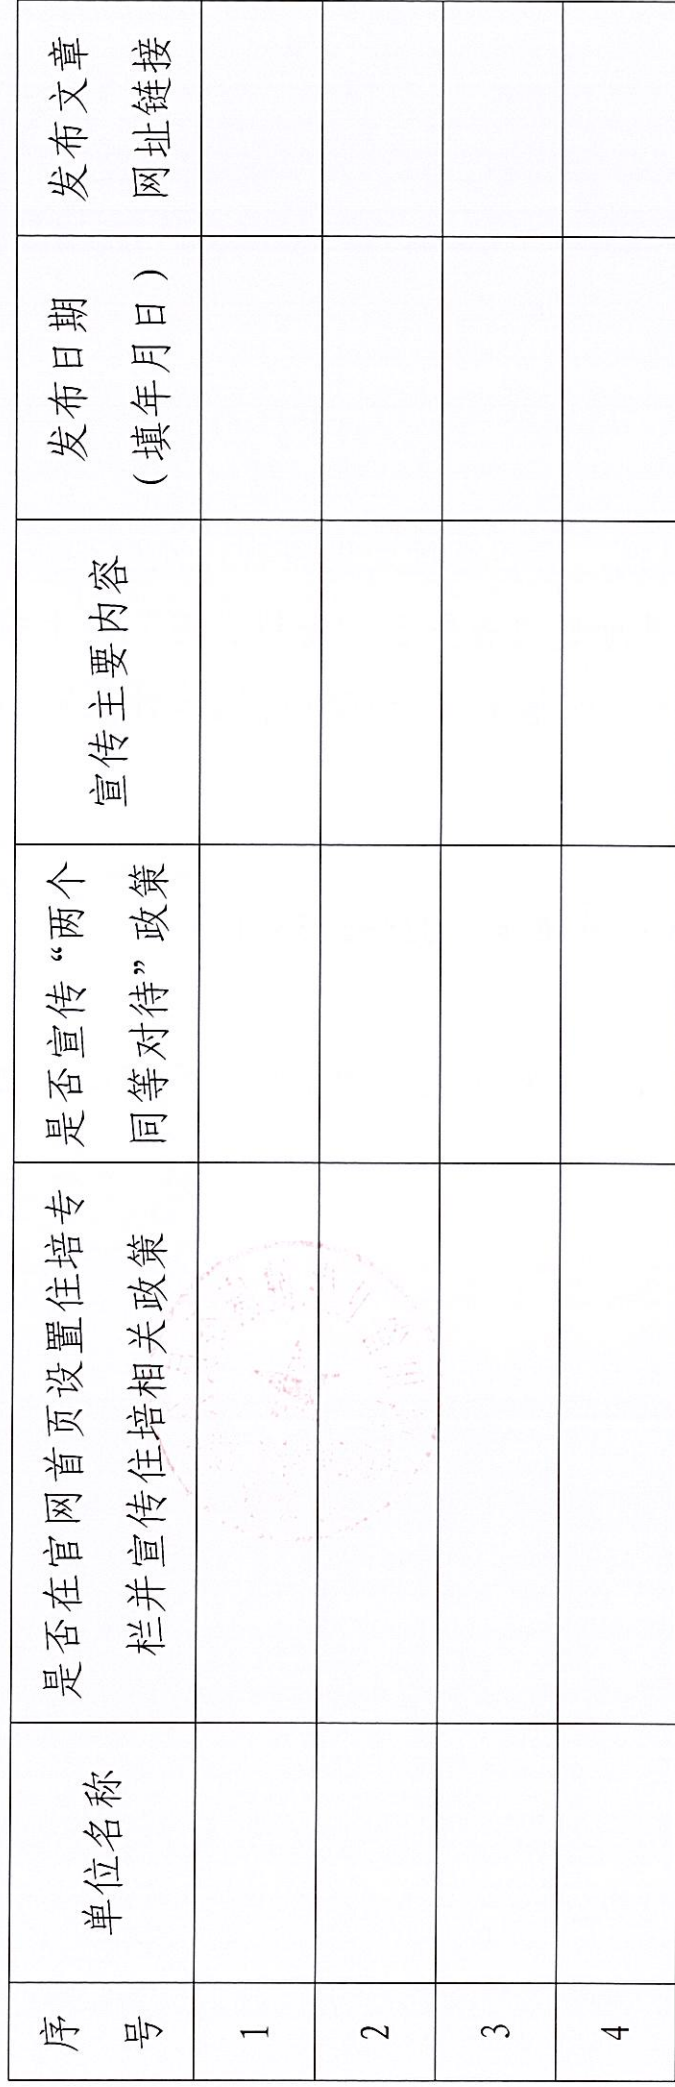 序
号
单位名称
是否在官网首页设置住培专
栏并宣传住培相关政策
是否宣传“两个
同等对待”政策
宣传主要内容
发布日期
(填年月日)
发布文章
网址链接
1
2
3
4